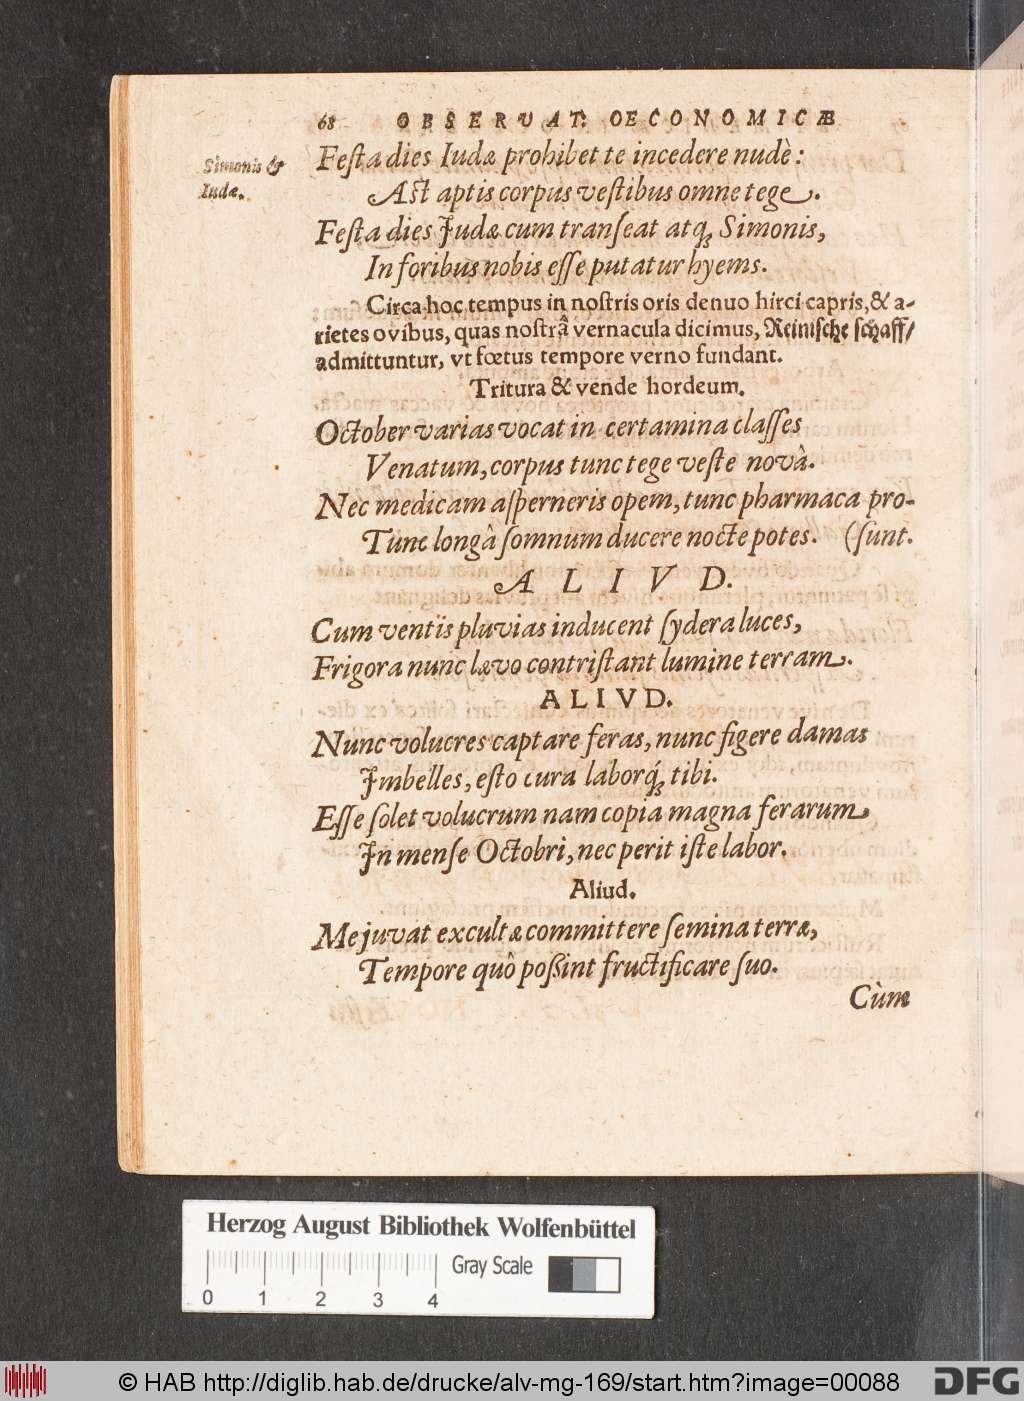 68 OBSERVAT: OECONOMICÆ
Simonis &
Iudæ.
Festa dies Iudæ prohibet te incedere nudè:
Ast aptis corpus vestibus omne tege.
Festa dies Judæ cum transeat atq; Simonis,
In foribus nobis esse putatur hyems.
Circa hoc tempus in nostris oris denuo hirci capris, & a-
rietes ovibus, quas nostrâ vernacula dicimus, Reinische schaff/
admittuntur, vt fœtus tempore verno fundant.
Tritura & vende hordeum.
October varias vocat in certamina classes
Venatum, corpus tunc tege veste novâ.
Nec medicam asperneris opem, tunc pharmaca pro-
Tunc longâ somnum ducere nocte potes. (sunt.
ALIVD.
Cum ventis pluvias inducent sydera luces,
Frigora nunc lævo contristant lumine terram.
ALIVD.
Nunc volucres captare feras, nunc figere damas
Jmbelles, esto cura laborq́; tibi.
Esse solet volucrum nam copia magna ferarum
Jn mense Octobri, nec perit iste labor.
Aliud.
Me juvat excultæ committere semina terræ,
Tempore quô poßint fructificare suo.
Cùm
Herzog August Bibliothek Wolfenbüttel
0 1 2 3 4 Gray Scale
© HAB http://diglib.hab.de/drucke/alv-mg-169/start.htm?image=00088 DFG